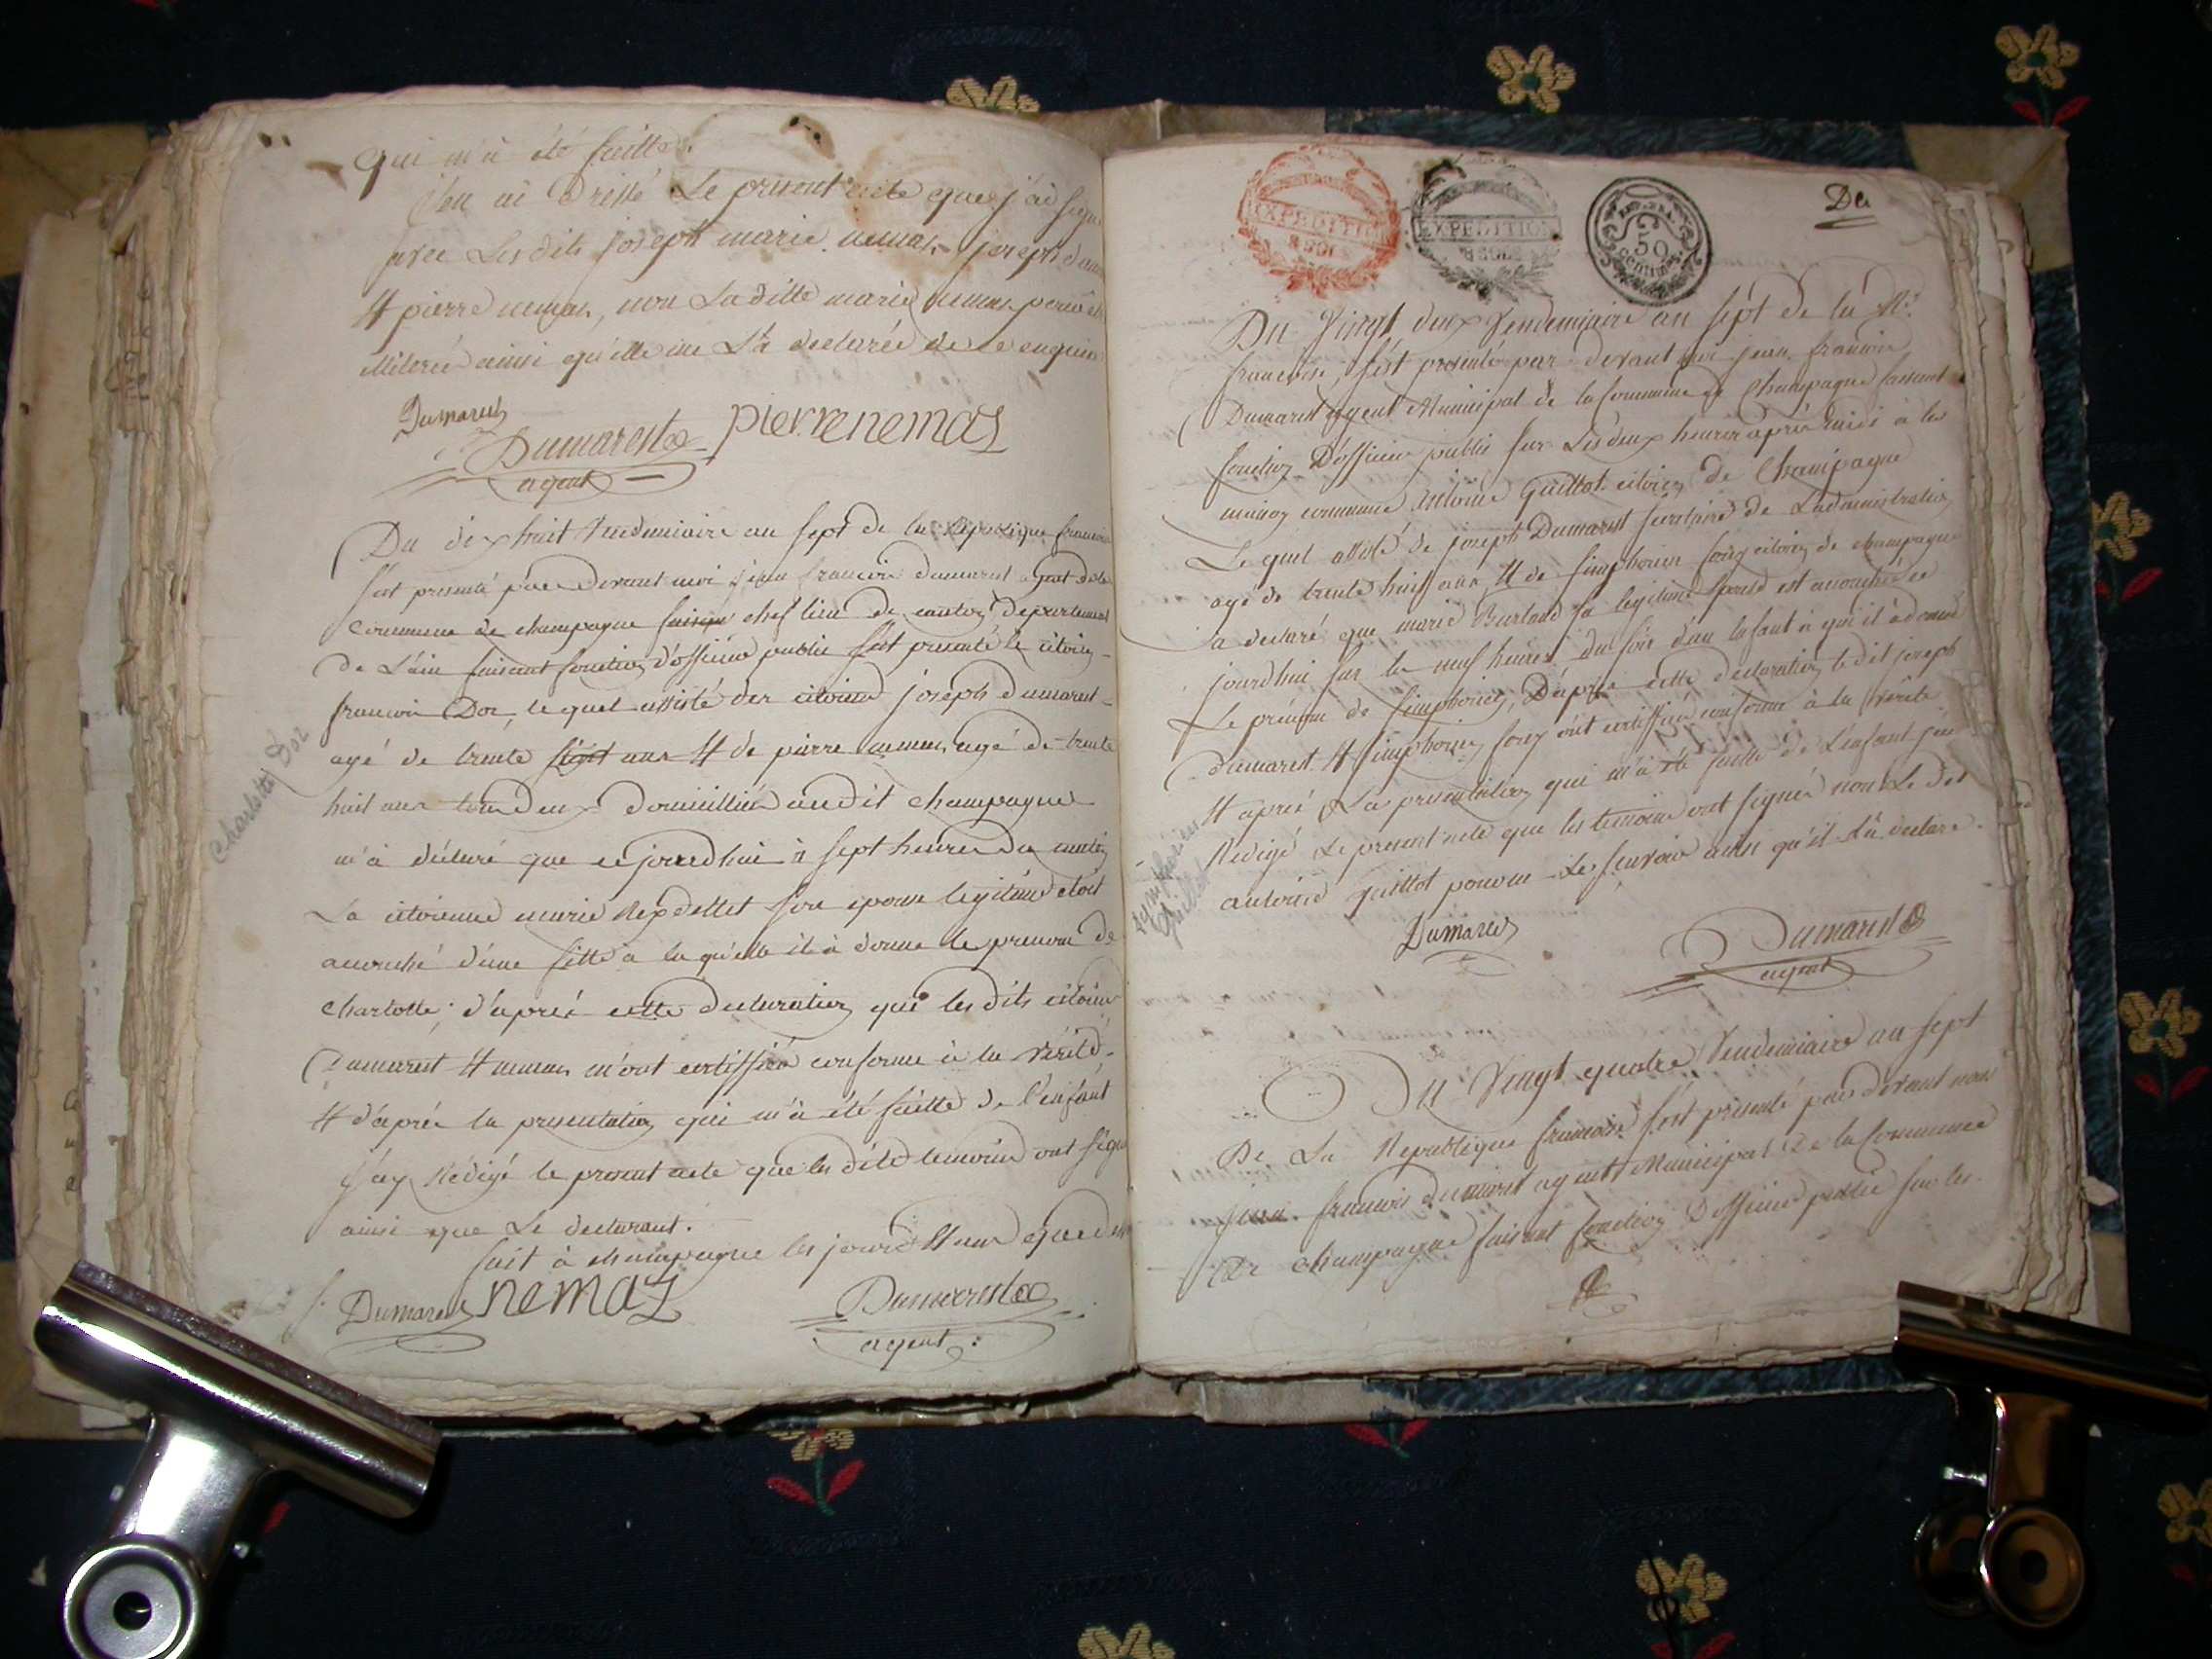 qui m'a été faitte.
J'en ai Dressé Le present acte que j'ai signé
avec Lesdits joseph marie nemoz joseph
& pierre nemoz, non Laditte marie nemoz pour être
illitérée ainsi qu'elle me L'a declarée de ce enquise
Dumarest
Dumarest
pierre nemoz
agent
Du dix huit Vendemiaire an sept de la Republique francoise
s'est presenté par devant moi jean francois dumarest agent de la
commune de champagne chef lieu de canton departement
de L'ain faisant fonction d'officier public s'est presenté le citoien
francois Dor, le quel assisté des citoiens joseph dumarest
agé de trente sept ans & de pierre nemoz agé de trente
huit ans tous deux domicilliés audit champagne
m'a declaré que ce jourdhui à sept heures du matin
La citoienne marie Rexdellet son epouse legitime etoit
accouché d'une fille a la qu'elle il a donné le prenom de
charlotte; d'après cette declaration que les dits citoiens
Dumarest & nemoz m'ont certiffiés conforme à la vérité
& d'après la presentation qui m'a été faitte de l'enfant
j'ay Rédigé le present acte que les dits temoins ont signé
ainsi que Le declarant.
fait à champagne les jours & an que dessus
Dumarest nemoz
Dumarest
agent
Charlotte Dor
EXPEDITION
8 SOLS
EXPEDITION
8 SOLS
50
centimes
Du Vingt deux Vendemiaire an sept de la R.
francoise, s'est presenté par devant moi jean francois
Dumarest agent Municipal de la Commune de Champagne faisant
fonction D'officier public sur Les deux heures après midi à la
maison commune antoine Guillot citoien de Champagne
Le quel assisté de joseph Dumarest secretaire de L'administration
agé de trente huit ans, & de simphorien citoien de champagne
a declaré que marie Burland sa legitime epouse est accouchée ce
jourdhui sur les neuf heures du soir d'un Enfant à qui il à donné
Le prénom de simphorien, D'après cette declaration le dit joseph
dumarest & simphorien ont certiffié conforme à la vérité
& après La presentation qui m'a été faitte de L'enfant j'ai
Redigé Le present acte que les temoins ont signés non Le dit
antoine guillot pour ne Le sçavoir ainsi qu'il L'a declaré.
Dumarest
Dumarest
agent
symphorien
Guillot
Du Vingt quatre Vendemiaire an sept
De La Republique francoise s'est presenté par devant nous
jean francois dumarest agent Municipal de la Commune
De champagne faisant fonction D'officier public sur les